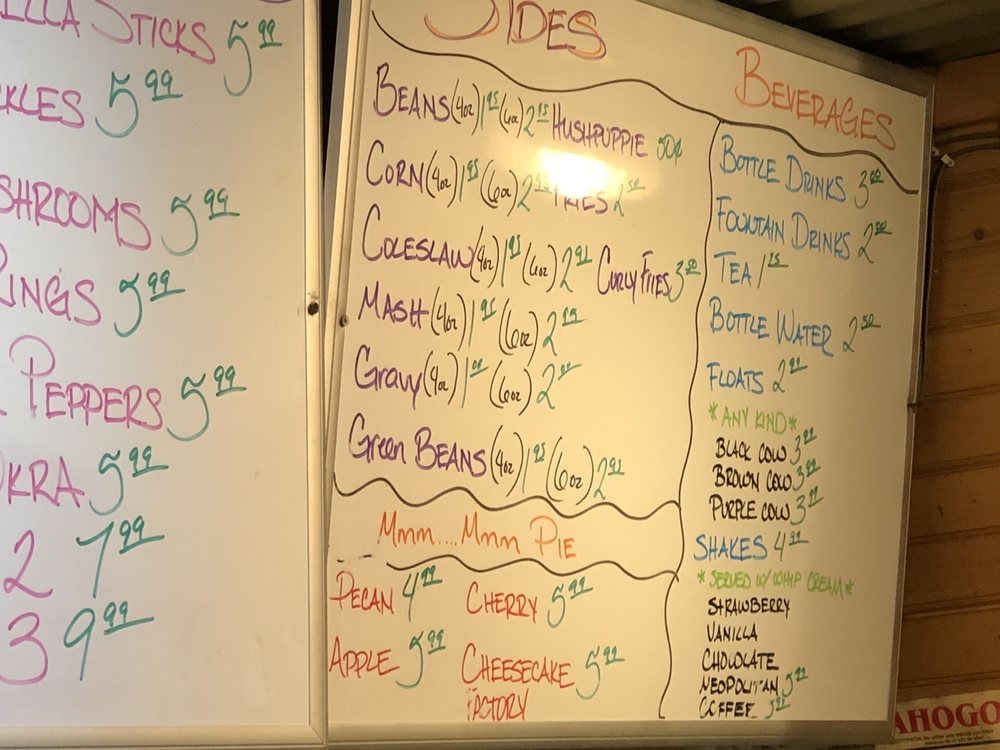 STICKS 5.99
KLES 5.99
SHROOMS 5.99
RINGS 5.99
PEPPERS 5.99
OKRA 5.99
2 7.99
3 9.99
SIDES
BEANS (4oz) 1.95 (6oz) 2.95 HUSHPUPPIE 50¢
CORN (4oz) 1.95 (6oz) 2.95 FRIES 2.50
COLESLAW (4oz) 1.95 (6oz) 2.95 CURLY FRIES 3.50
MASH (4oz) 1.95 (6oz) 2.95
Gravy (4oz) (6oz)
Green BEANS (4oz) 1.95 (6oz) 2.95
Mmm....Mmm PIE
PECAN 4.99 CHERRY 5.99
APPLE 5.99 CHEESECAKE 5.99
FACTORY
BEVERAGES
BOTTLE DRINKS 3.00
FOUNTAIN DRINKS 2.50
TEA
BOTTLE WATER 2.50
FLOATS 2.99
*ANY KIND*
BLACK COW 3.99
BROWN COW 3.99
PURPLE COW 3.99
SHAKES 4.99
*SERVED W/ WHIP CREAM*
STRAWBERRY
VANILLA
CHOCOLATE
NEOPOLITAN 5.99
COFFEE 5.99
AHOGO